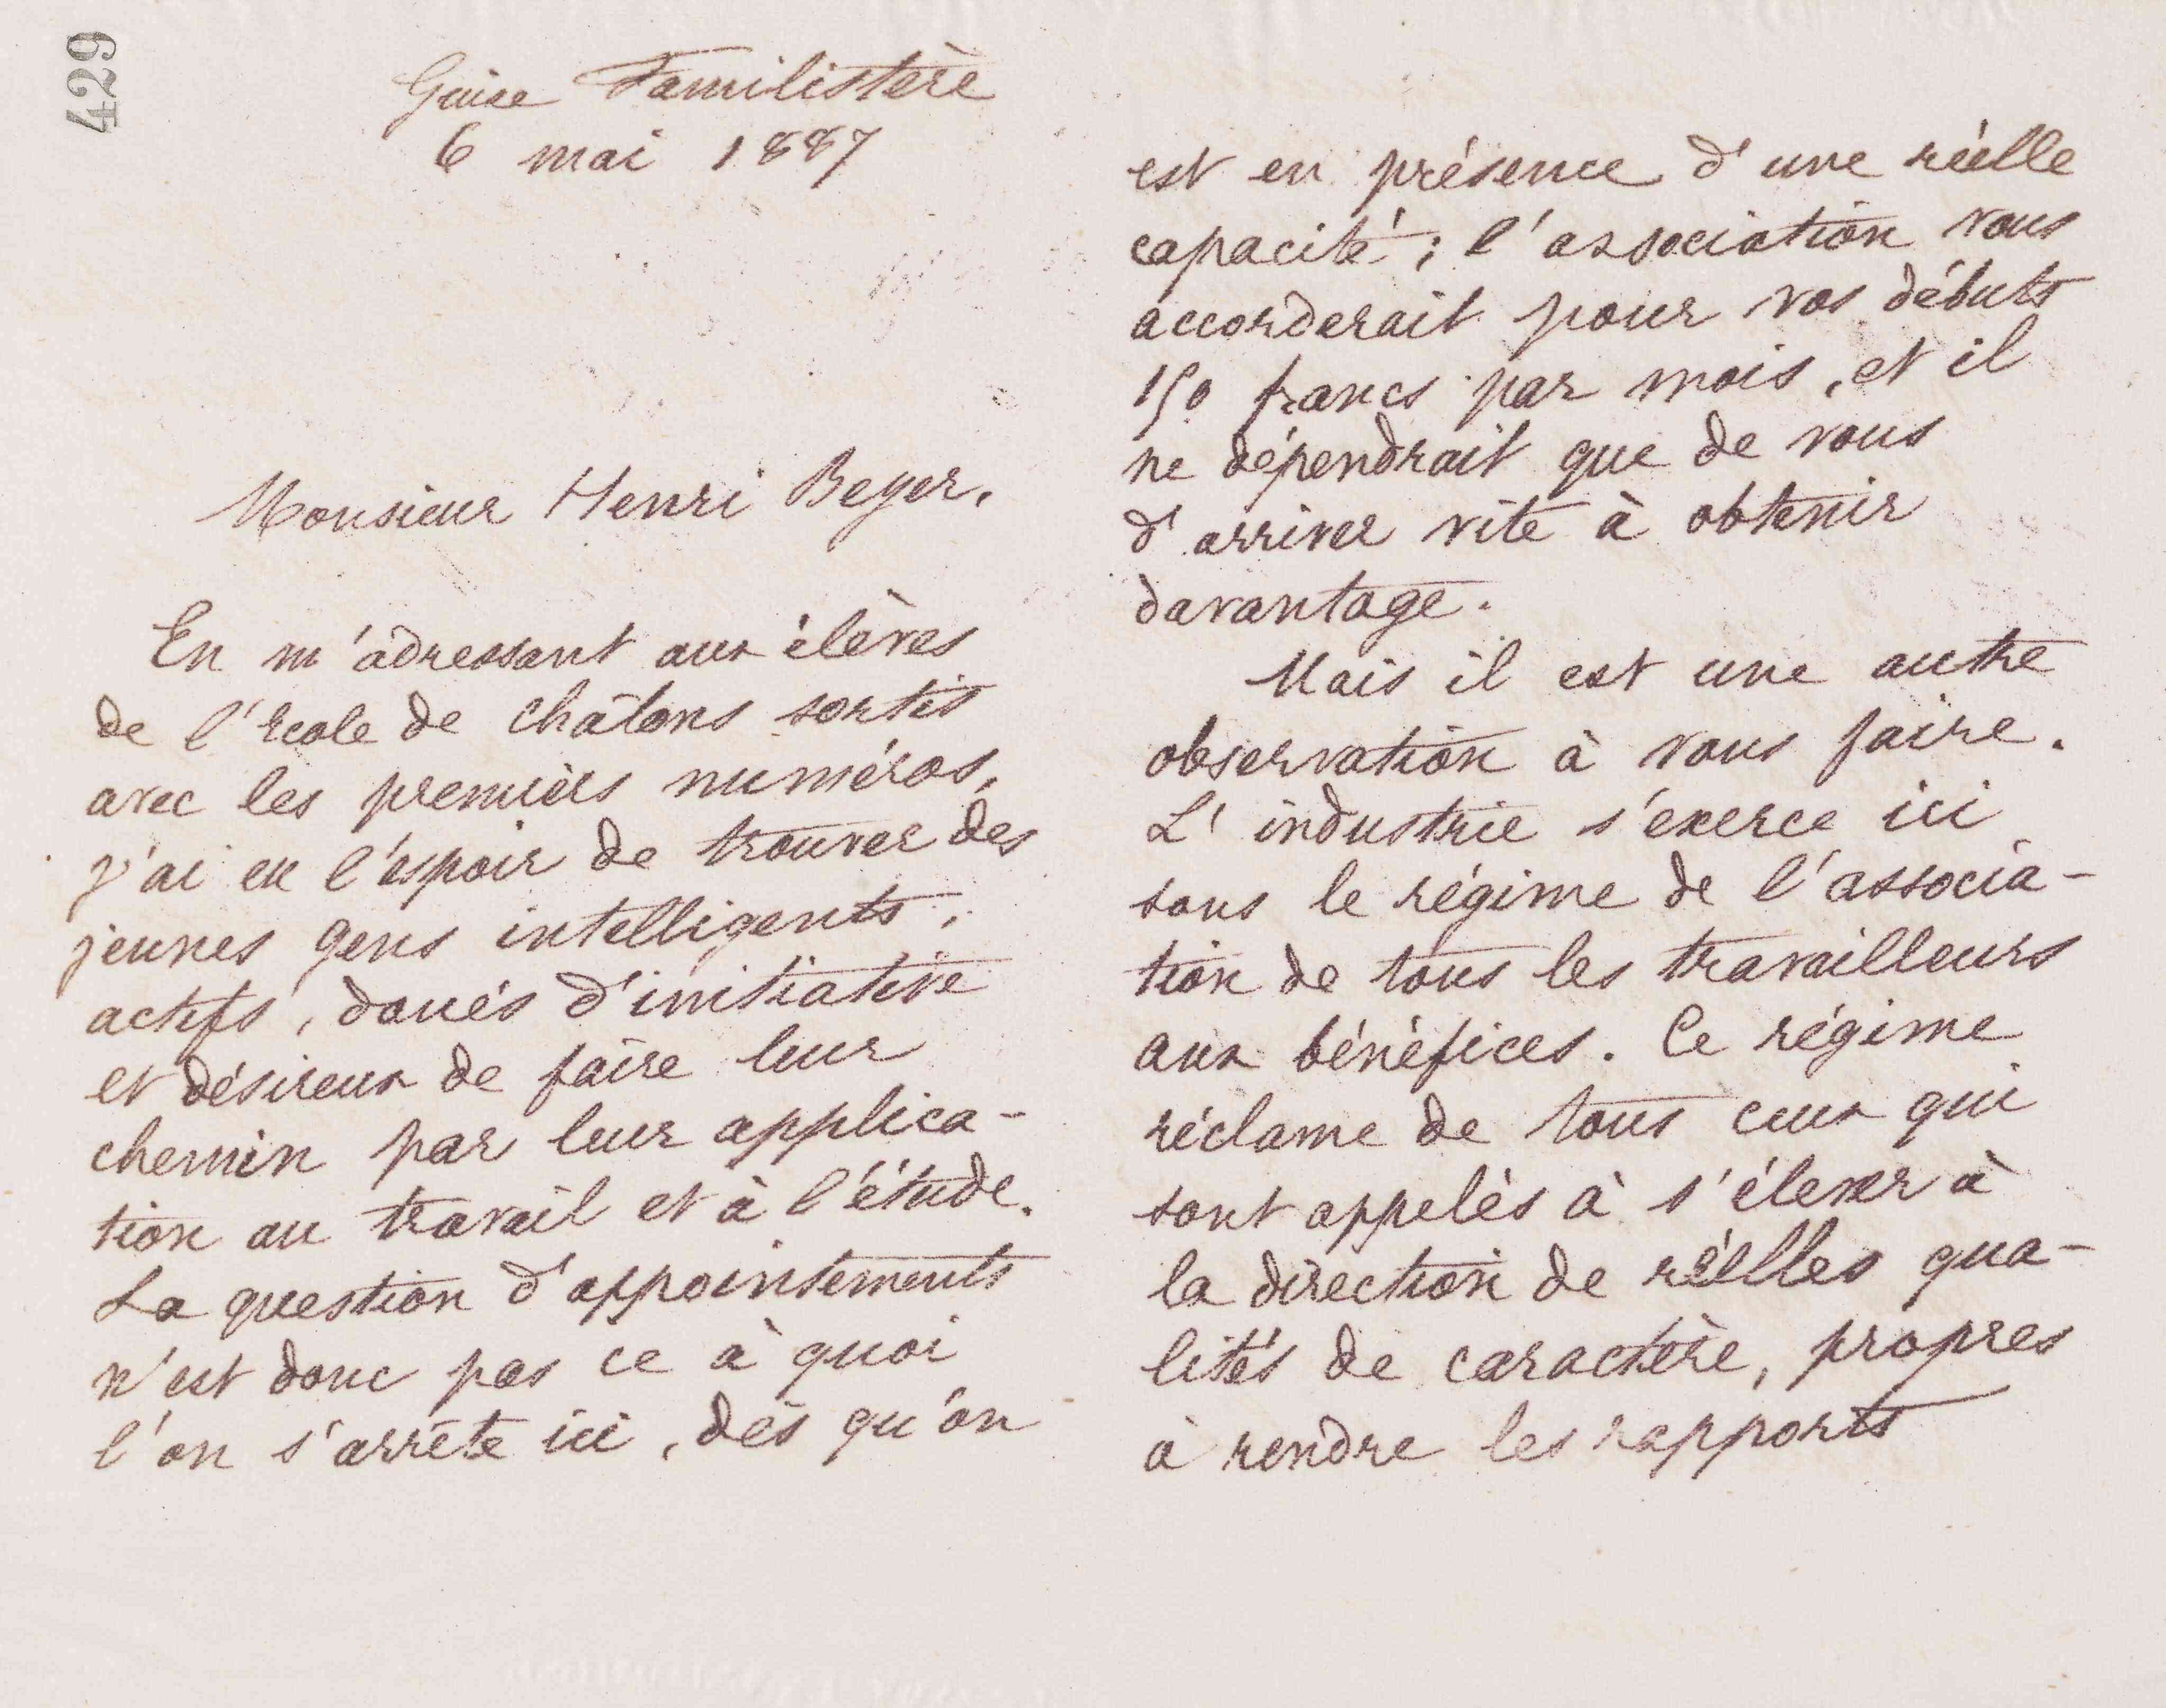 429
Guise Familistère
6 mai 1887
Monsieur Henri Beyer.
En m'adressant aux élèves
de l'école de Châlons sortis
avec les premiers numéros,
j'ai eu l'espoir de trouver des
jeunes gens intelligents,
actifs, doués d'initiative
et désireux de faire leur
chemin par leur applica-
tion au travail et à l'étude.
La question d'appointements
n'est donc pas ce à quoi
l'on s'arrête ici, dès qu'on
est en présence d'une réelle
capacité ; l'association vous
accorderait pour vos débuts
150 francs par mois, et il
ne dépendrait que de vous
d'arriver vite à obtenir
davantage.
Mais il est une autre
observation à vous faire.
L'industrie s'exerce ici
sous le régime de l'associa-
tion de tous les travailleurs
aux bénéfices. Ce régime
réclame de tous ceux qui
sont appelés à s'élever à
la direction de réelles qua-
lités de caractère, propres
à rendre les rapports